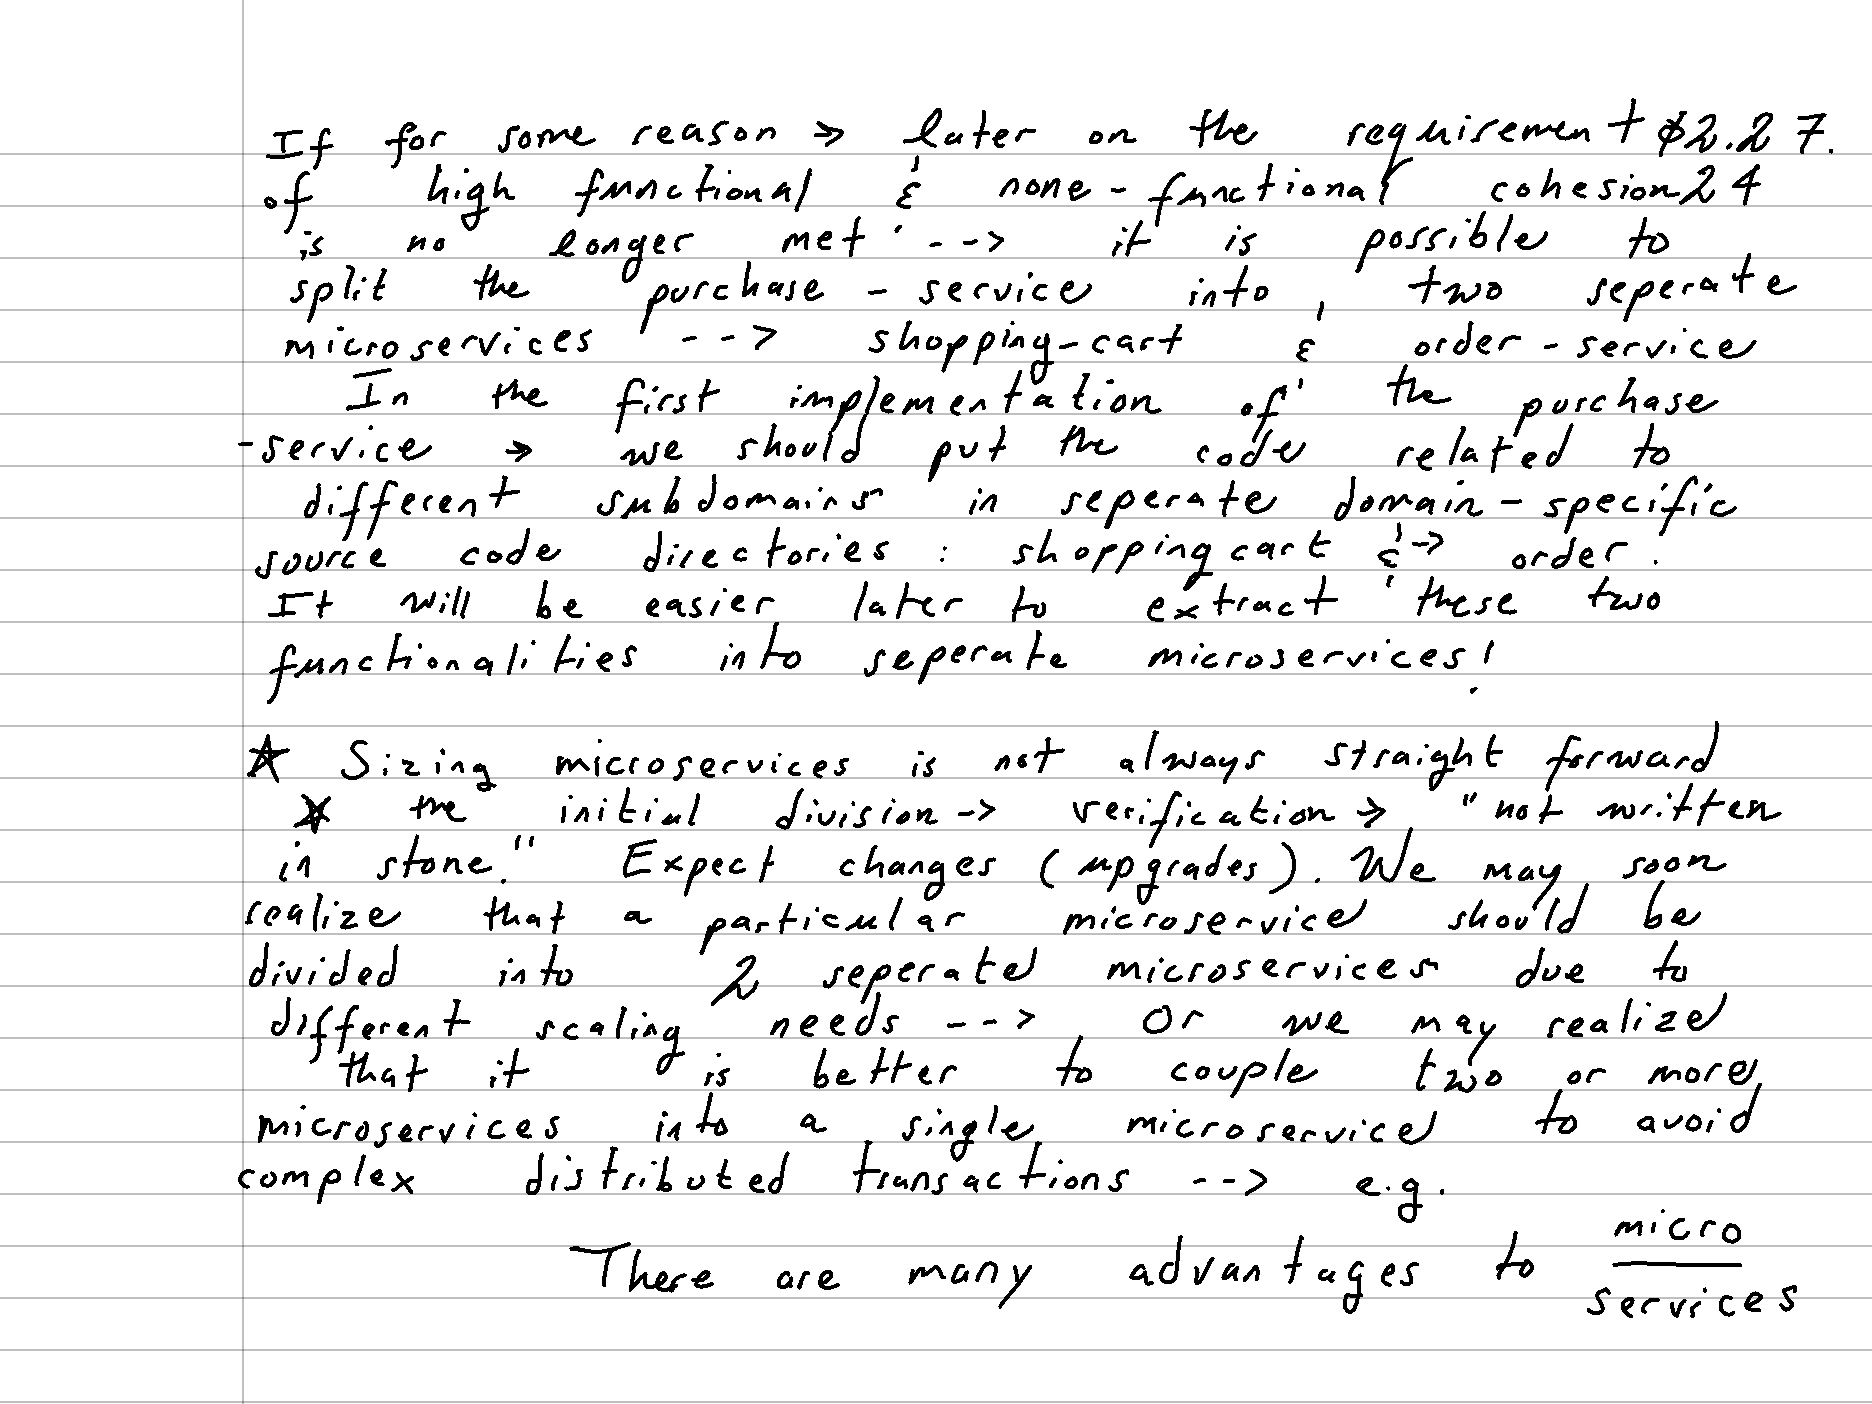 If for some reason → later on the requirement $2.27.
of high functional & none-functional cohesion24
is no longer met --> it is possible to
split the purchase-service into two seperate
microservices ---> shopping-cart & order-service
In the first implementation of the purchase
-service → we should put the code related to
different subdomains in seperate domain-specific
source code directories : shoppingcart &→ order.
It will be easier later to extract these two
functionalities into seperate microservices!
☆ Sizing microservices is not always straight forward
☆ the initial division -> verification → "not written
in stone." Expect changes (upgrades). We may soon
realize that a particular microservice should be
divided into 2 seperate microservices due to
different scaling needs --> Or we may realize
that it is better to couple two or more
microservices into a single microservice to avoid
complex distributed transactions --> e.g.
There are many advantages to micro
services